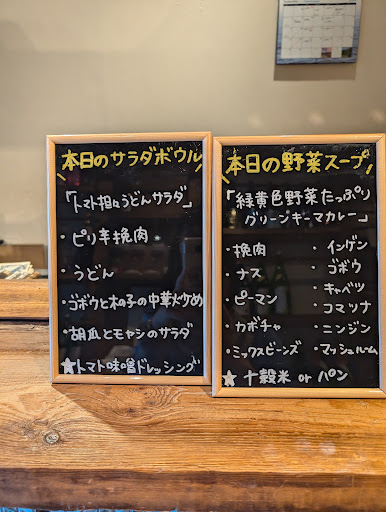 本日のサラダボウル
「トマト担々うどんサラダ」
・ピリ辛挽肉
・うどん
・ゴボウと木の子の中華炒め
・胡瓜とモヤシのサラダ
★トマト味噌ドレッシング
本日の野菜スープ
「緑黄色野菜たっぷり
グリーンキーマカレー」
・挽肉
・ナス
・ピーマン
・カボチャ
・ミックスビーンズ
・インゲン
・ゴボウ
・キャベツ
・コマツナ
・ニンジン
・マッシュルーム
★十穀米 or パン